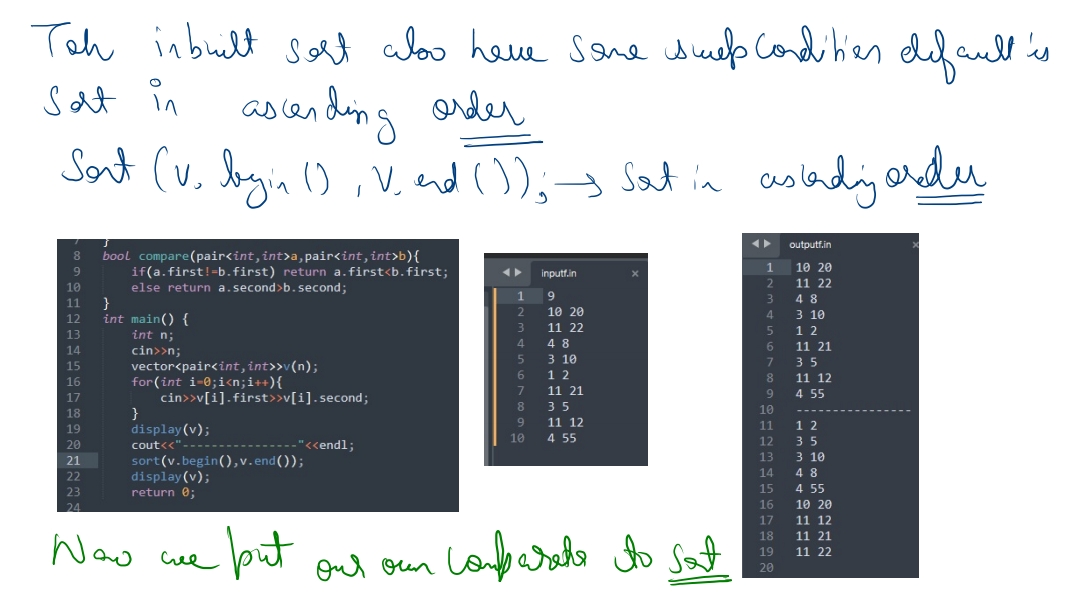 Toh inbuilt sort also have some swap condition default is
sort in ascending order
Sort (v. begin () , v. end ()); → Sort in ascending order
7 }
8 bool compare(pair<int,int>a,pair<int,int>b){
9 if(a.first!=b.first) return a.first<b.first;
10 else return a.second>b.second;
11 }
12 int main() {
13 int n;
14 cin>>n;
15 vector<pair<int,int>>v(n);
16 for(int i=0;i<n;i++){
17 cin>>v[i].first>>v[i].second;
18 }
19 display(v);
20 cout<<"----------------"<<endl;
21 sort(v.begin(),v.end());
22 display(v);
23 return 0;
24
inputf.in ×
1 9
2 10 20
3 11 22
4 4 8
5 3 10
6 1 2
7 11 21
8 3 5
9 11 12
10 4 55
outputf.in ×
1 10 20
2 11 22
3 4 8
4 3 10
5 1 2
6 11 21
7 3 5
8 11 12
9 4 55
10 ----------------
11 1 2
12 3 5
13 3 10
14 4 8
15 4 55
16 10 20
17 11 12
18 11 21
19 11 22
20
Now we put our own comparator to sort